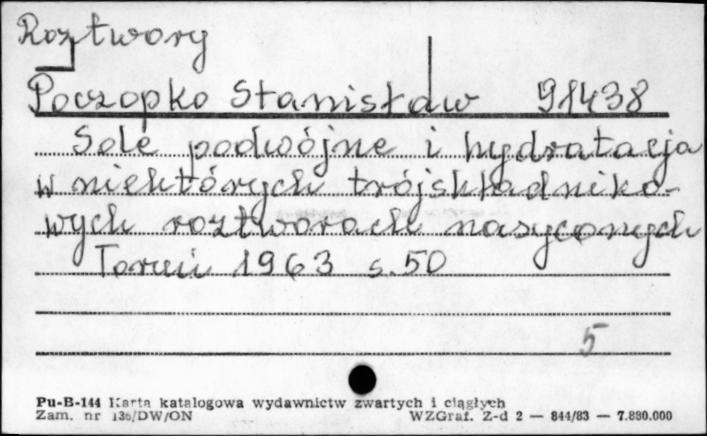 Roztwory
Poczopko Stanisław 91438
Sole podwójne i hydratacja
w niektórych trójskładniko-
wych roztworach nasyconych
Toruń 1963 s. 50
5
Pu-B-144 Karta katalogowa wydawnictw zwartych i ciągłych
Zam. nr 136/DW/ON WZGraf. Z-d 2 — 844/83 — 7.880.000